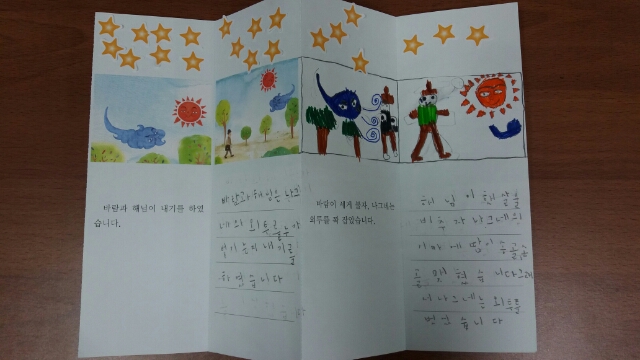 바람과 해님이 내기를 하였
습니다.
바람과 해님은 나그
네의 외투를 누가
벗기는지 내기를
하였습니다
바람이 세게 불자, 나그네는
외투를 꽉 잡았습니다.
해님이 햇살을
비추자 나그네의
이마에 땀이 송골송
골 맺혔습니다 그래
서 나그네는 외투를
벗었습니다